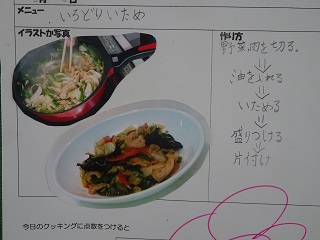 メニュー
いろどりいため
イラストか写真
作り方
野菜、肉を切る。
⇓
油を入れる
⇓
いためる
⇓
盛りつける
⇓
片付け
今日のクッキングに点数をつけると